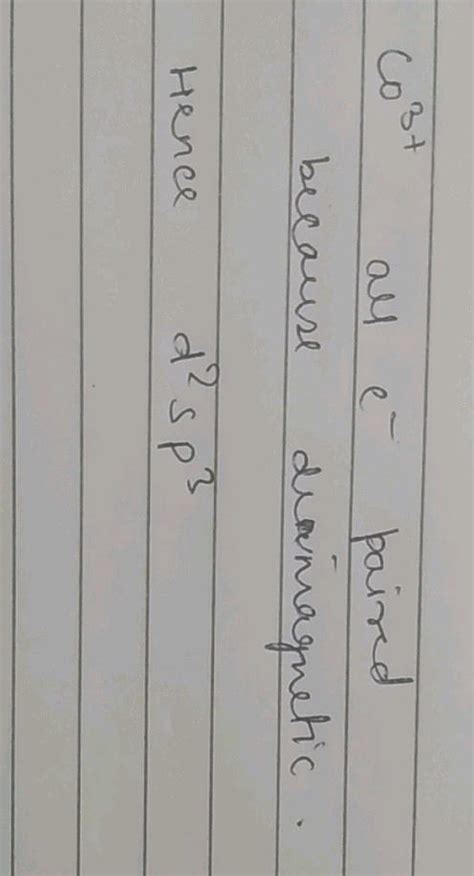 Co³⁺ all e⁻ paired
because diamagnetic.
Hence d²sp³